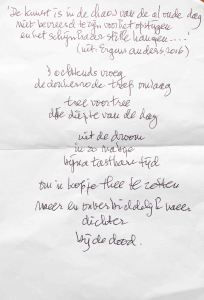 'De kunst is in de chaos van de al oude dag
niet bevreesd te zijn voor het opstijgen
en het schijnbaar stille hangen....'
(uit: Ergens anders 2016)
's ochtends vroeg
de donkerrode trap omlaag
tree voor tree
de diepte van de dag
uit de droom
in zo
bijna tastbare tijd
om 'n kopje thee te zetten
weer en onverbiddelijk weer
dichter
bij de dood.